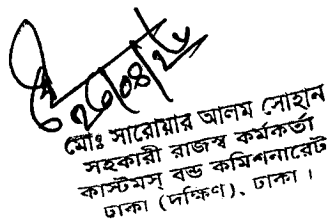 ২৬/০৪/২৮
মোঃ সারোয়ার আলম সোহান
সহকারী রাজস্ব কর্মকর্তা
কাস্টমস্ বন্ড কমিশনারেট
ঢাকা (দক্ষিণ), ঢাকা।